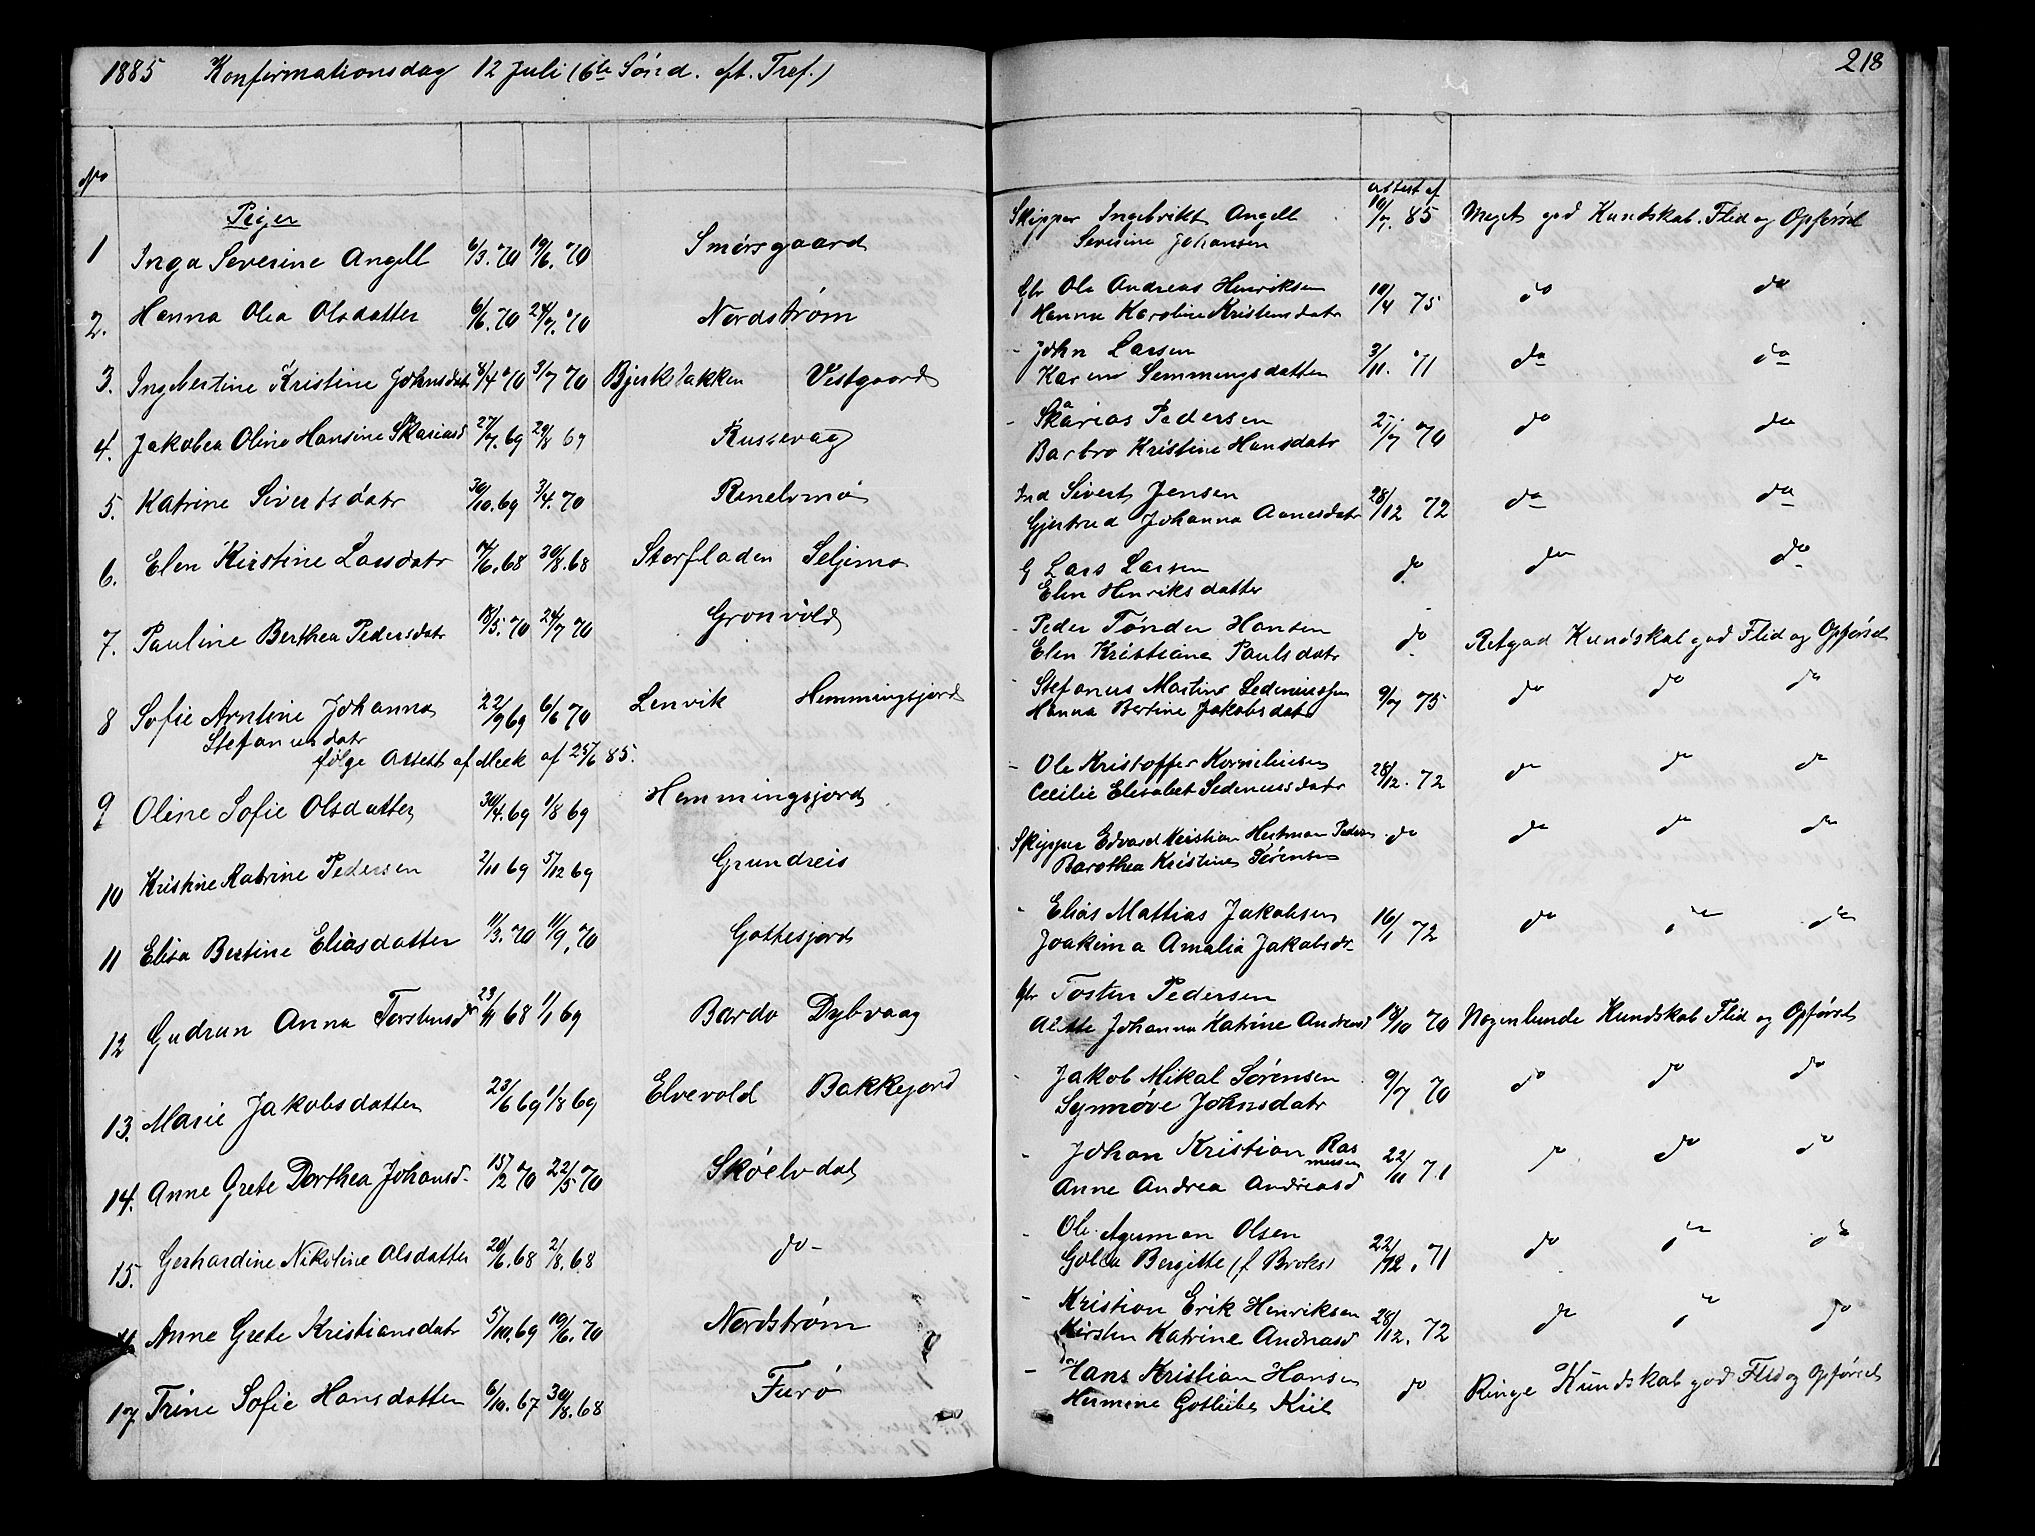 1885 Konfirmationsdag 12 Juli (6te Sönd. eft. Tref.)
218
No
Piger
1 Inga Severine Angell 6/3.70 19/6.70 Smörsgaard Skipper Ingebrikt Angell attest af 10/7.85 Meget god Kundskab. Flid og Opförsel
Severine Johansen
2. Hanna Olea Olsdatter 6/6.70 24/7.70 Nordstrøm Gbr Ole Andreas Henriksen 10/4 75 do do
Hanna Karoline Kristensdatr
3. Ingebertine Kristine Johnsdatr 8/4 70 3/7 70 Bjerkbakken Vestgaard - John Larsen 3/11.71 do do
Karen Semmingsdatter
4. Jakobea Oline Hansine Skariasd 27/7.69 29/8 69 Russevaag - Skarias Pedersen 25/7 70 do do
Barbro Kristine Hansdatr
5. Katrine Sivertsdatr 30/10.69 3/4.70 Ranelvmo Ind Sivert Jensen 28/12 72 do do
Gjertrud Johanna Aanesdatr
6. Elen Kirstine Larsdatr 7/6.68 30/8.68 Storfladen Seljemo G Lars Larsen do do do
Elen Henriksdatter
7. Pauline Berthea Pedersdatr 18/5.70 24/7 70 Gronvold - Peder Tønder Hansen do Retgod Kundskab god Flid og Opførsel
Elen Kristiane Paulsdatr
8 Sofie Arntine Johanna 22/9 69 6/6 70 Lenvik Hemmingsjord - Stefanus Martin Sedeniussen 9/7 75 do do do
Stefanusdatr Hanna Bertine Jakobsdatr
følge Attest af Meek af 25/6 85.
9 Oline Sofie Olsdatter 30/4.69 1/8 69 Hemmingsjord - Ole Kristoffer Korneliusen 28/12.72 do do do
Cecilie Elisabet Sedeniusdatr
10 Kristine Katrine Pedersen 2/11 69 5/12 69 Grundreis Skipper Edvard Kristian Hertman Pedersen do do do do
Barothea Kristine Sörensen
11 Elisa Bertine Eliasdatter 11/3.70 11/9.70 Gottesjord - Elias Mattias Jakobsen 16/1 72 do do do
Joakima Amalia Jakobsdr
12 Gudrun Anna Torstensdr 23/11 68 1/1 69 Bardo Dybvaag Gbr Tosten Pedersen
Alette Johanna Katrine Andreasd 18/10 70 Nogenlunde Kundskab Flid og Opførsel
13. Marie Jakobsdatter 23/6 69 1/8 69 Elvevold Bakkejord - Jakob Mikal Sörensen 9/7 70 do do do
Synnøve Johnsdatr
14. Anne Grete Dorthea Johansd. 15/2 70 22/5 70 Skøelvdal - Johan Kristian Rasmussen 22/11 71 do do do
Anne Andrea Andreasd
15. Gerhardine Nikoline Olsdatter 20/6.68 2/8.68 do - Ole Aguman Olsen 22/12.71 do do do
Golla Bergitte (f Broks)
16 Anne Grete Kristiansdatr 5/10.69 19/6.70 Nordstrøm - Kristian Erik Henriksen 28/12.72 do do do
Kirsten Katrine Andreasd
17 Trine Sofie Hansdatter 6/10.67 30/8.68 Furø - Hans Kristian Hansen do Ringe Kundskab god Flid og Opførsel
Hermine Gotliebe Kiil